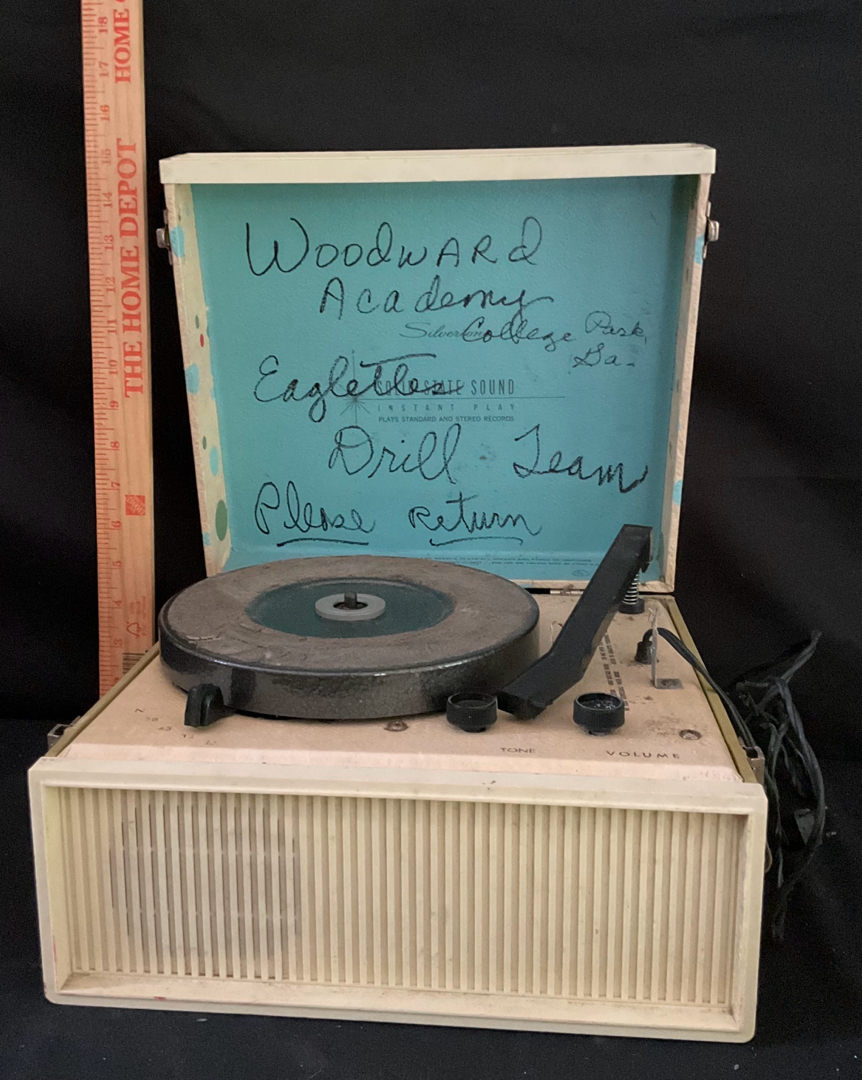 WoodwARd
Academy
Silvertone
College Park,
Ga.
Eaglettes
SOLID STATE SOUND
INSTANT PLAY
PLAYS STANDARD AND STEREO RECORDS
Drill Team
Please Return
TONE
VOLUME
HOME
THE HOME DEPOT
18
17
16
15
14
13
12
11
10
9
8
7
6
5
4
3